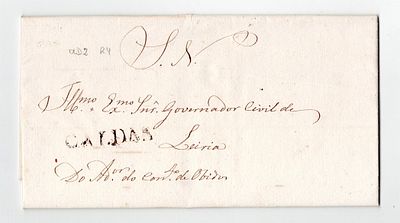 CLDZ R4
S. N.
Illmo. Exmo. Snr. Governador Civil de
CALDAS
Leiria
Do Ador. do Conso. de Obidos